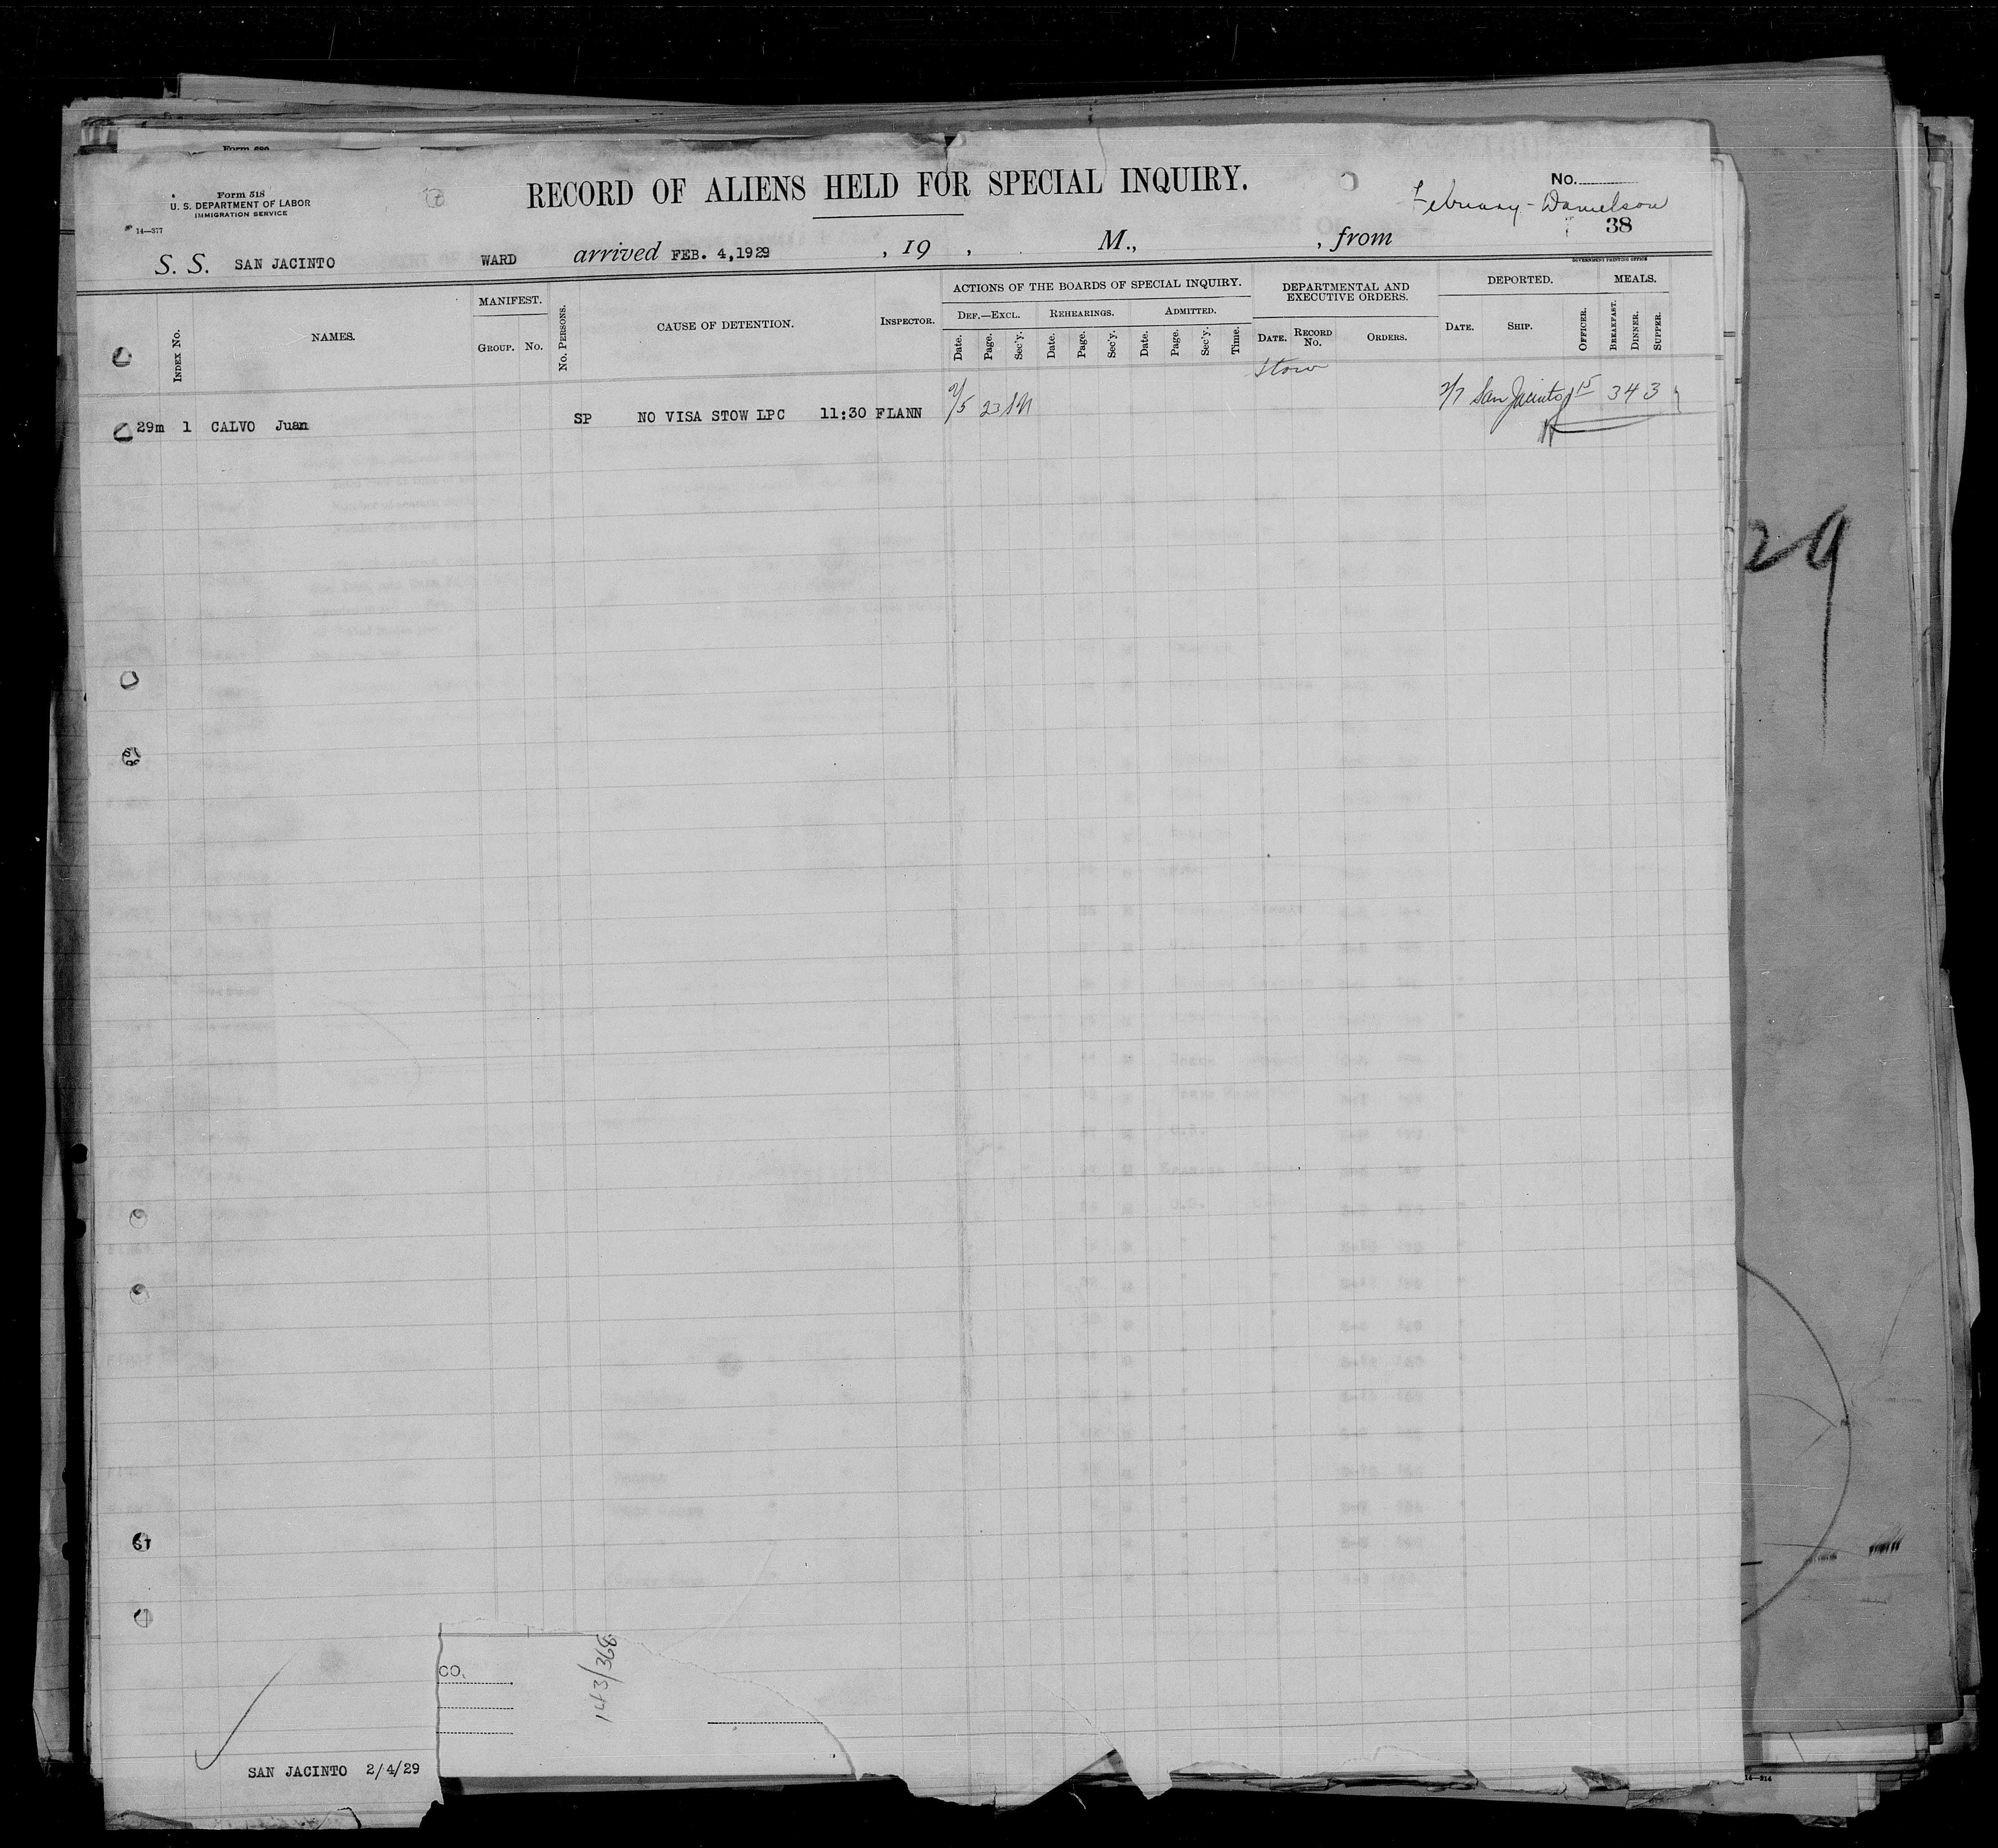 Form 680
Form 518
U. S. DEPARTMENT OF LABOR
IMMIGRATION SERVICE
14—377
RECORD OF ALIENS HELD FOR SPECIAL INQUIRY.
No.
February - Danielson
38
S. S. SAN JACINTO WARD arrived FEB. 4,1929 , 19 , M., , from
GOVERNMENT PRINTING OFFICE
INDEX NO. NAMES. MANIFEST. GROUP. NO. NO. PERSONS. CAUSE OF DETENTION. INSPECTOR.
ACTIONS OF THE BOARDS OF SPECIAL INQUIRY.
DEF.—EXCL. REHEARINGS. ADMITTED.
Date. Page. Sec'y. Date. Page. Sec'y. Date. Page. Sec'y. Time.
DEPARTMENTAL AND
EXECUTIVE ORDERS.
DATE. RECORD No. ORDERS.
DEPORTED. MEALS.
DATE. SHIP. OFFICER. BREAKFAST. DINNER. SUPPER.
Stow
29m 1 CALVO Juan SP NO VISA STOW LPC 11:30 FLANN 2/5 23 2/7 San Jacinto 15 3 4 3
29
CO.
143/368
SAN JACINTO 2/4/29
14—314